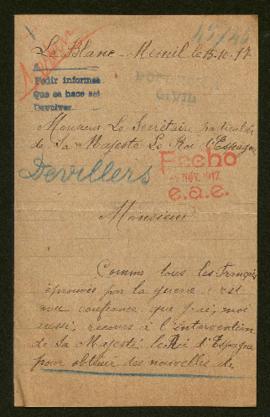 Le Blanc-Mesnil le 15-10-17
Pedir informes
Que se hace así
Devolver.
CIVIL
Monsieur Le Secrétaire particulier
de Sa Majesté Le Roi d'Espagne
Fecho
NOV. 1917
e.a.e.
Devillers
Monsieur
Comme tous les Français
éprouvés par la guerre c'est
avec confiance que j'ai, moi
aussi, recours à l'intervention
de Sa Majesté le Roi d'Espagne
pour obtenir des nouvelles de